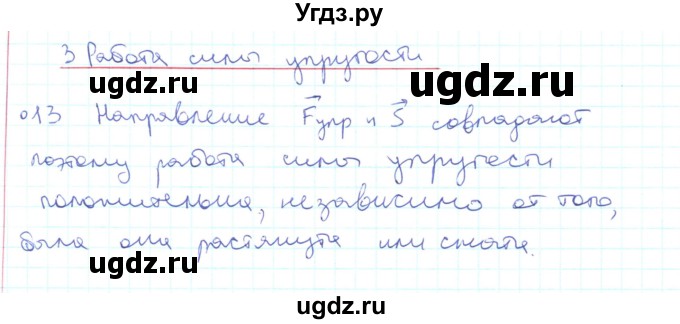 Угдз.ру
3 Работа силы упругости
ugdz.ru ugdz.ru
о13 Направление F⃗упр и S⃗ совпадают
ugdz.ru
поэтому работа силы упругости
положительна, независимо от того,
ugdz.ru ugdz.ru
была она растянута или сжата.
ugdz.ru